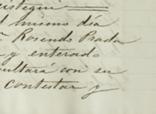 el mismo día
Rosendo Prada
y enterado
sultará con su
contestar y